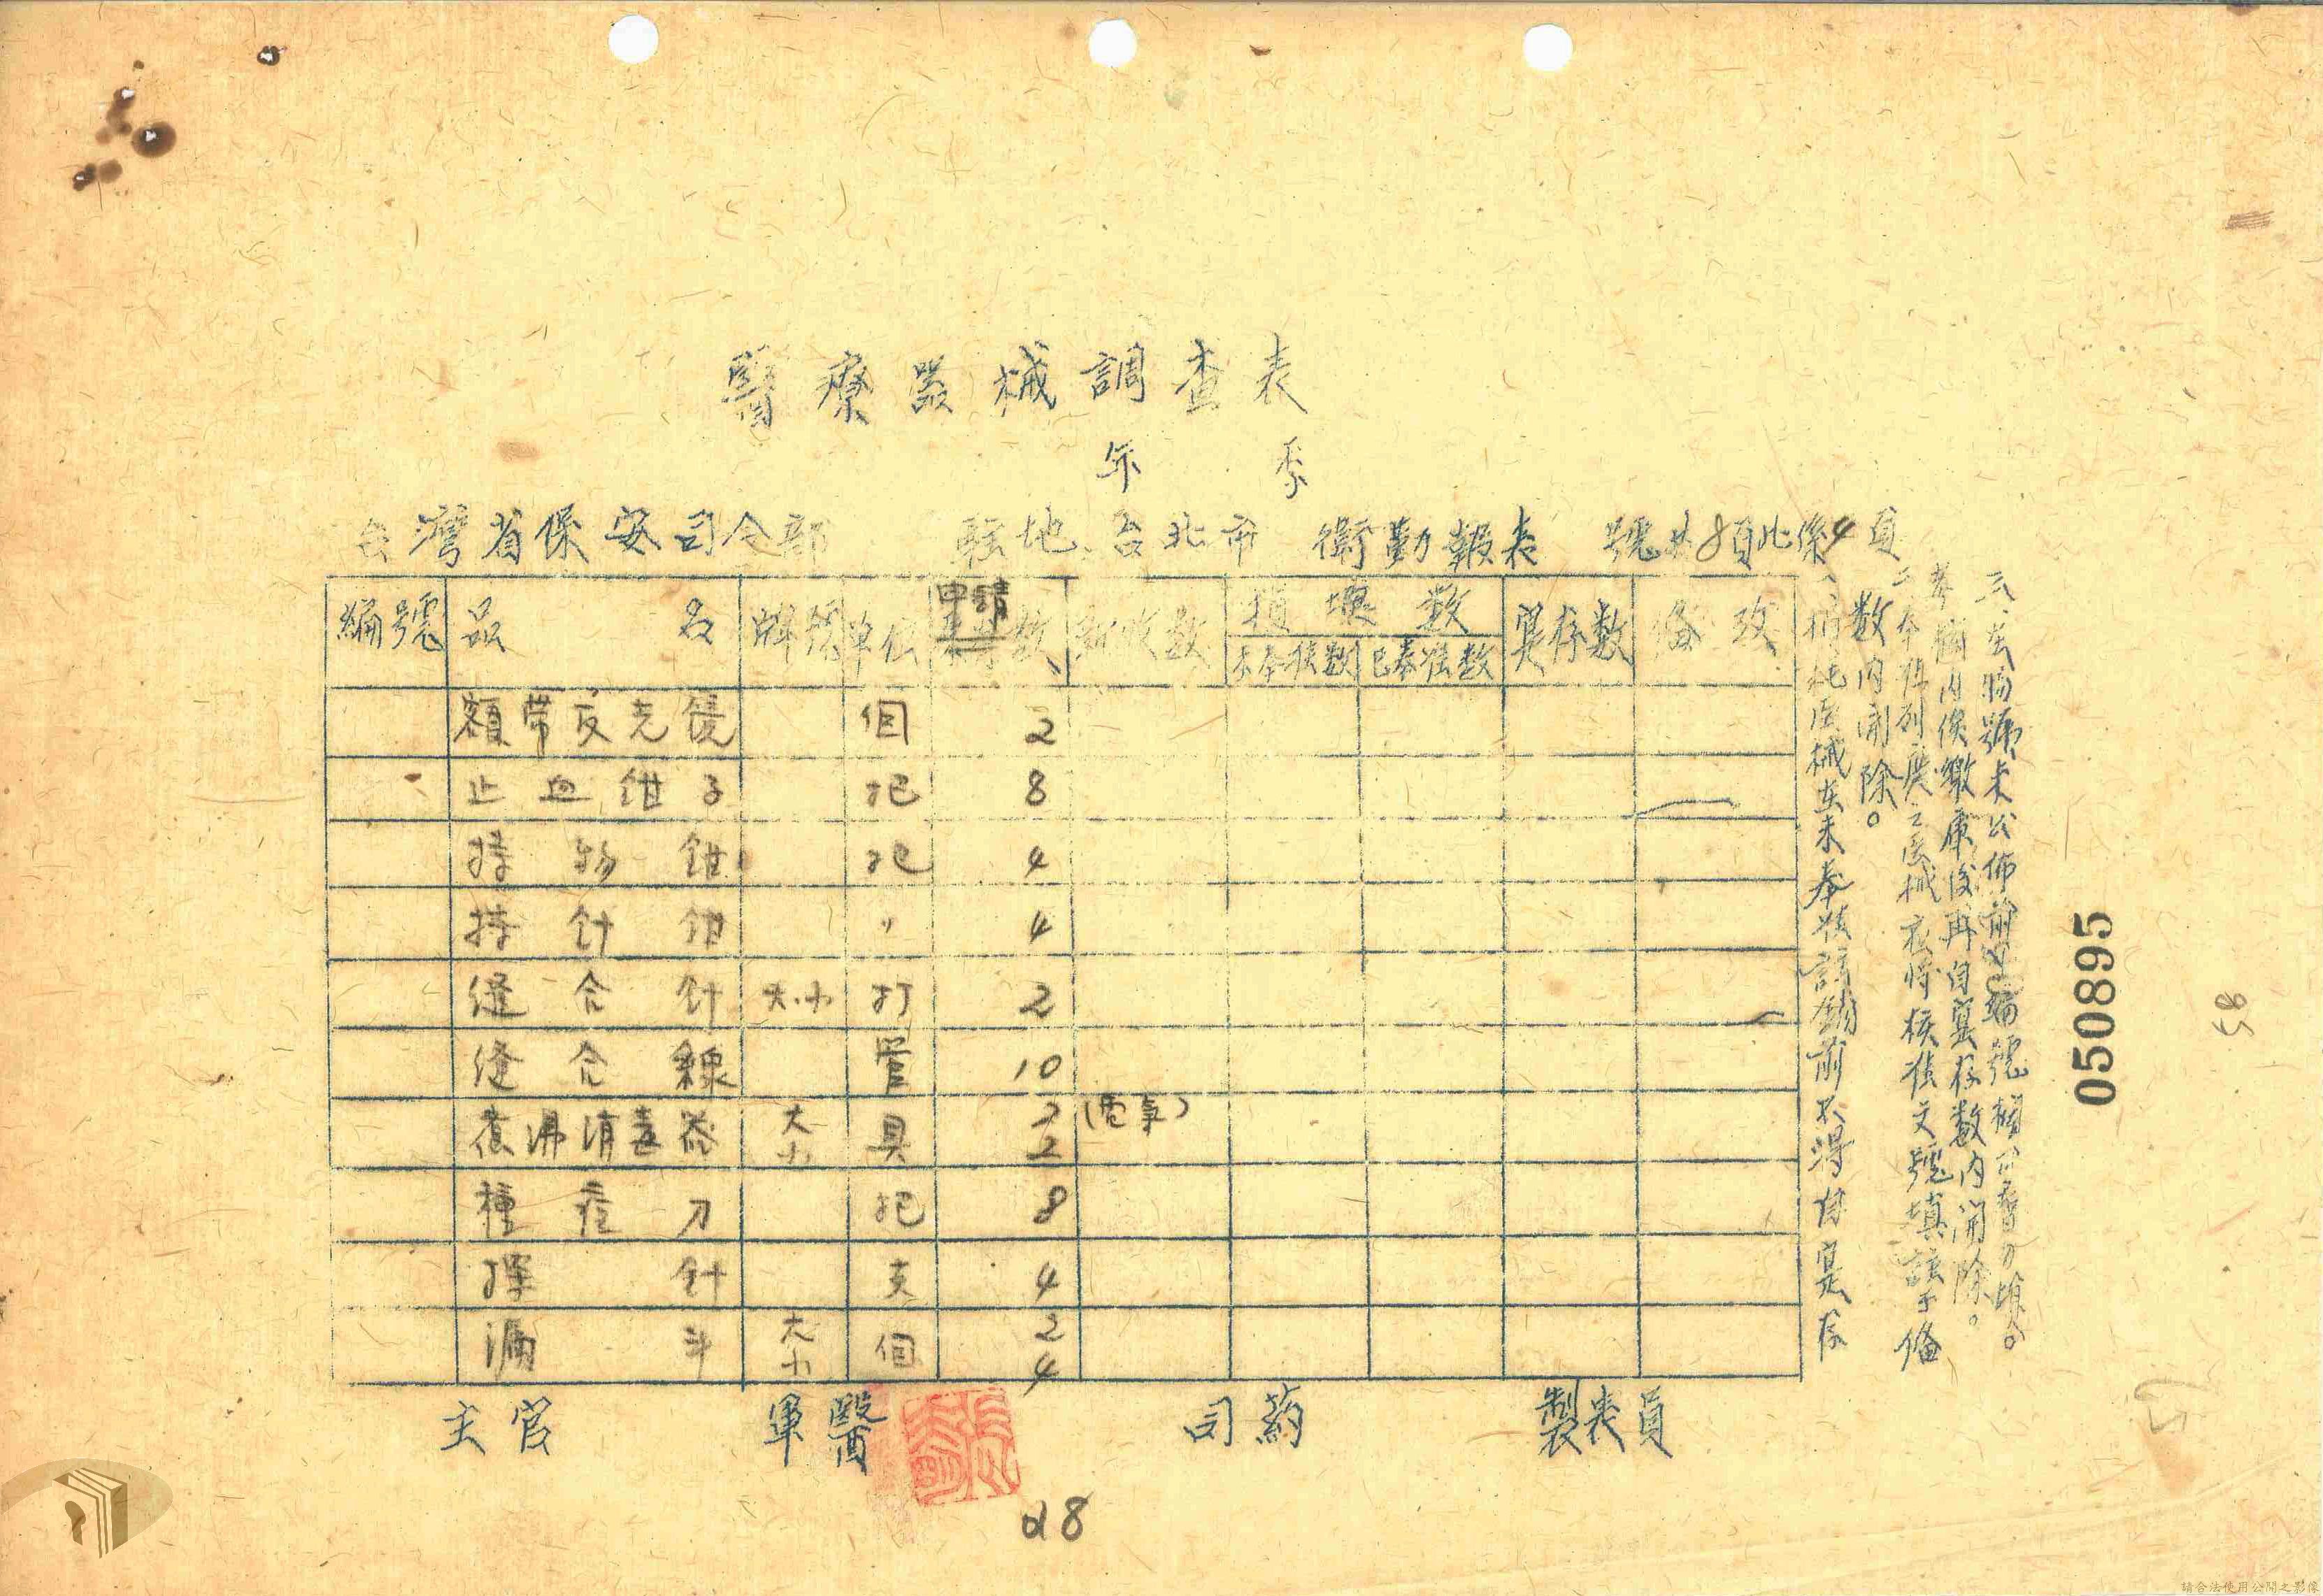 醫療器械調查表
年 季
台灣省保安司令部 駐地 台北市 衛勤報表 號共8頁此係4頁
編號 品名 牌號 單位 申請數 新收數 損壞數 實存數 備攷
未奉准數 已奉准數
額帶反光鏡 個 2
止血鉗子 把 8
持物鉗 把 4
持針鉗 〃 4
縫合針 大.小 打 2
縫合線 管 10
煮沸消毒器 大 小 具 2 2 (電氣)
種痘刀 把 8
探針 支 4
漏斗 大 小 個 2 4
主官 軍醫 司葯 製表員
一、損耗医械在未奉准註銷前不得自實存
数内開除。
二、本陣列廢之医械應將核准文號填註于備
考欄内俟繳庫後再自實存数内開除。
三、番號未公佈前編號欄可暫勿填。
050895
85
28
請合法使用公開之影像